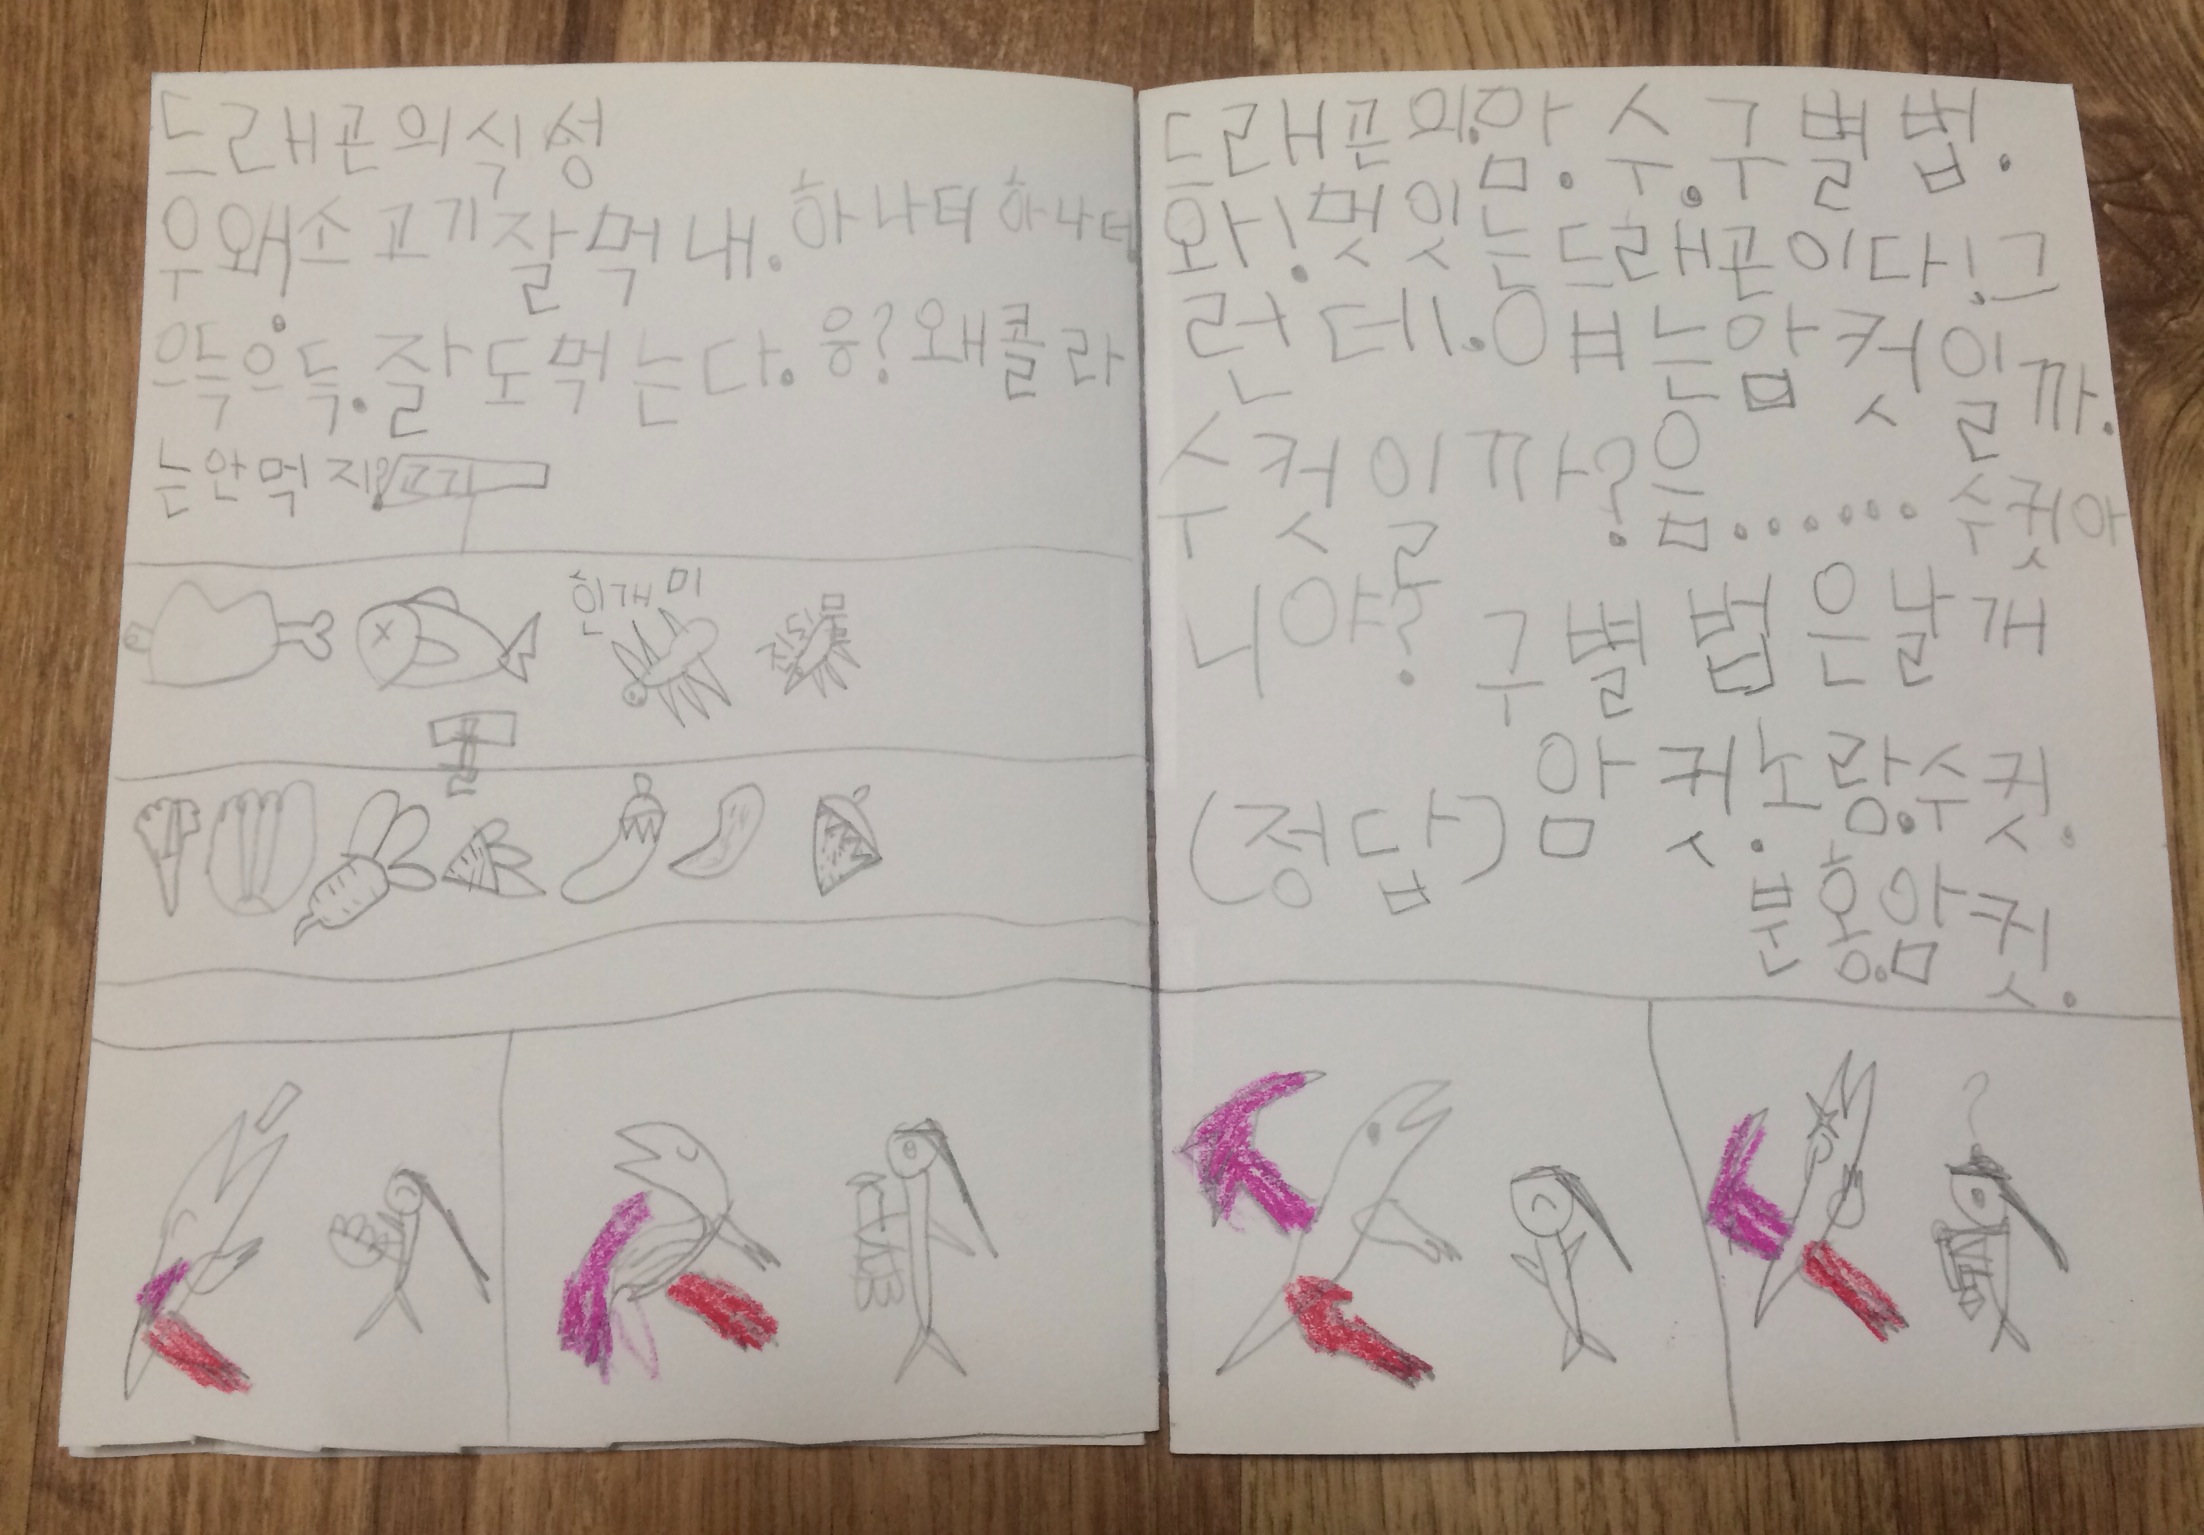 드래곤의식성
우왜!소고기잘먹내.하나더하나더
으득으득.잘도먹는다.응?왜콜라
는안먹지?
고기
흰개미
물
드래곤의.암.수.구별법.
와!멋잇는드래곤이다!그
런데.얘는암컷일까.
수컷일까?음......수컷아
니야? 구별법은날개
(정답)암컷.노랑.수컷.
분홍.암컷.